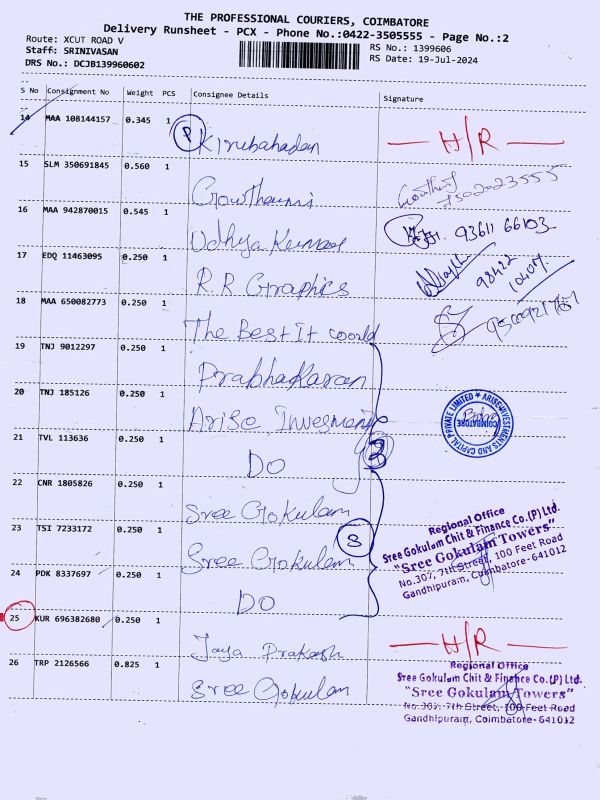 THE PROFESSIONAL COURIERS, COIMBATORE
Delivery Runsheet - PCX - Phone No.:0422-3505555 - Page No.:2
Route: XCUT ROAD V
Staff: SRINIVASAN
DRS No.: DCJB139960602
RS No.: 1399606
RS Date: 19-Jul-2024
S No Consignment No Weight PCS Consignee Details Signature
14 MAA 108144157 0.345 1 P Kirubahadan H/R
15 SLM 350691845 0.560 1 Gowthami 7502023555
16 MAA 942870015 0.545 1 Udhya Kumar 93611 66103
17 EDQ 11463095 0.250 1 R.R Graphics 98422 10407
18 MAA 650082773 0.250 1 The Best It world
19 TNJ 9012297 0.250 1 Prabhakaran
20 TNJ 185126 0.250 1 Arise Invesment
ARISE INVESTMENTS AND CAPITAL PRIVATE LIMITED
COIMBATORE
21 TVL 113636 0.250 1 DO 3
22 CNR 1805826 0.250 1 Sree Gokulam
23 TSI 7233172 0.250 1 Sree Gokulam 3
Regional Office
Sree Gokulam Chit & Finance Co.(P) Ltd.
"Sree Gokulam Towers"
No.307, 7th Street, 100 Feet Road
Gandhipuram, Coimbatore-641012
24 PDK 8337697 0.250 1 DO
25 KUR 696382680 0.250 1 Jaya Prakash H/R
26 TRP 2126566 0.825 1 Sree Gokulam
Regional Office
Sree Gokulam Chit & Finance Co.(P) Ltd.
"Sree Gokulam Towers"
No.307, 7th Street, 100 Feet Road
Gandhipuram, Coimbatore-641012